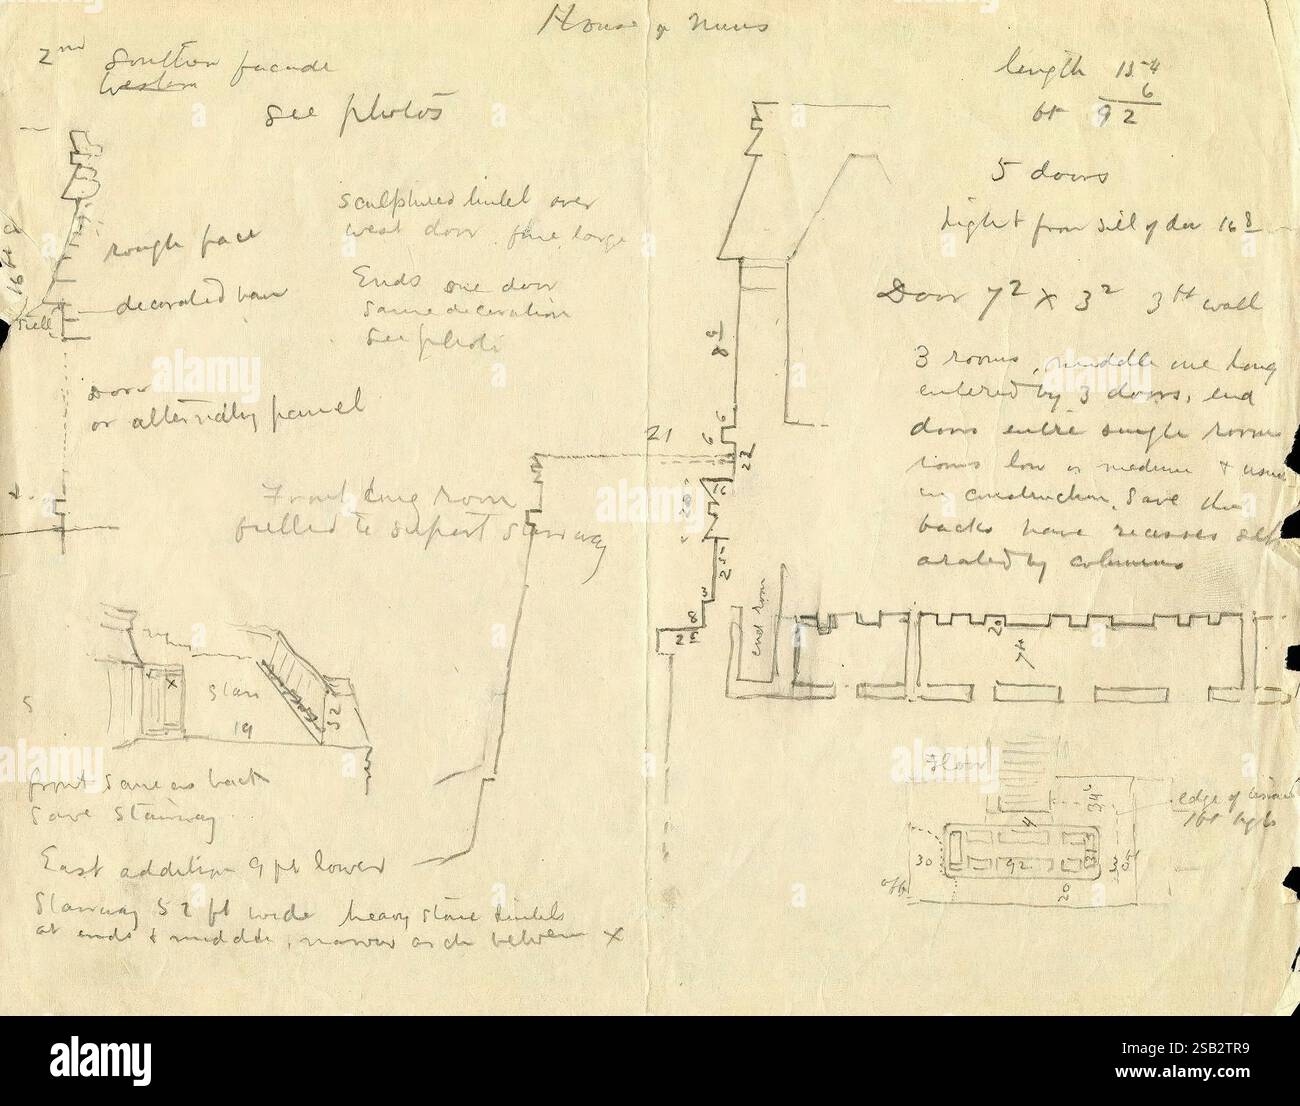 House of Nuns
2nd Southern facade
Western
See photos
length 15-4
6
ft 92
5 doors
hight from sill of door 16 8
Door 7 2 x 3 2 3 ft wall
3 rooms, middle one long
entered by 3 doors, end
doors enter single rooms
rooms low or medium + usual
in construction, save the
backs have recesses sep
arated by columns
sculptured lintel over
west door fine large
Ends one door
same decoration
see photo
rough face
decorated
sill
Door
or alternately panel
Front long room
filled to support stairway
21
8 6
6
6
16
25
3
8
end room
20
7 ft
Stair
19
52
x
front same as back
save stairway
East addition 9 ft lower
Stairway 52 ft wide heavy stone lintels
at ends + middle, narrow arch between x
Floor
34
4
edge of
1 ft high
30
92
313
30 ft
20
alamy
Image ID: 2SB2TR9
www.alamy.com